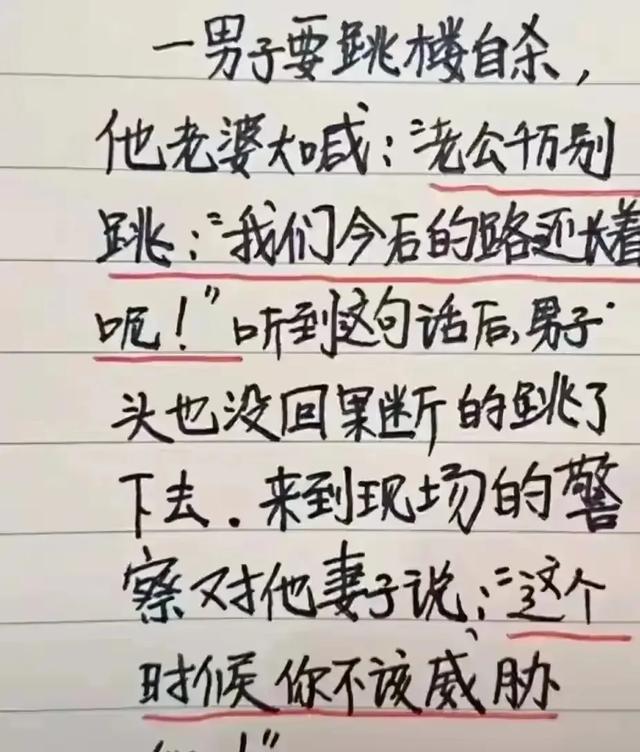 一男子要跳楼自杀，
他老婆大喊："老公千万别
跳："我们今后的路还长着
呢！"听到这句话后，男子
头也没回果断的跳了
下去．来到现场的警
察对他妻子说："这个
时候你不该威胁
！"